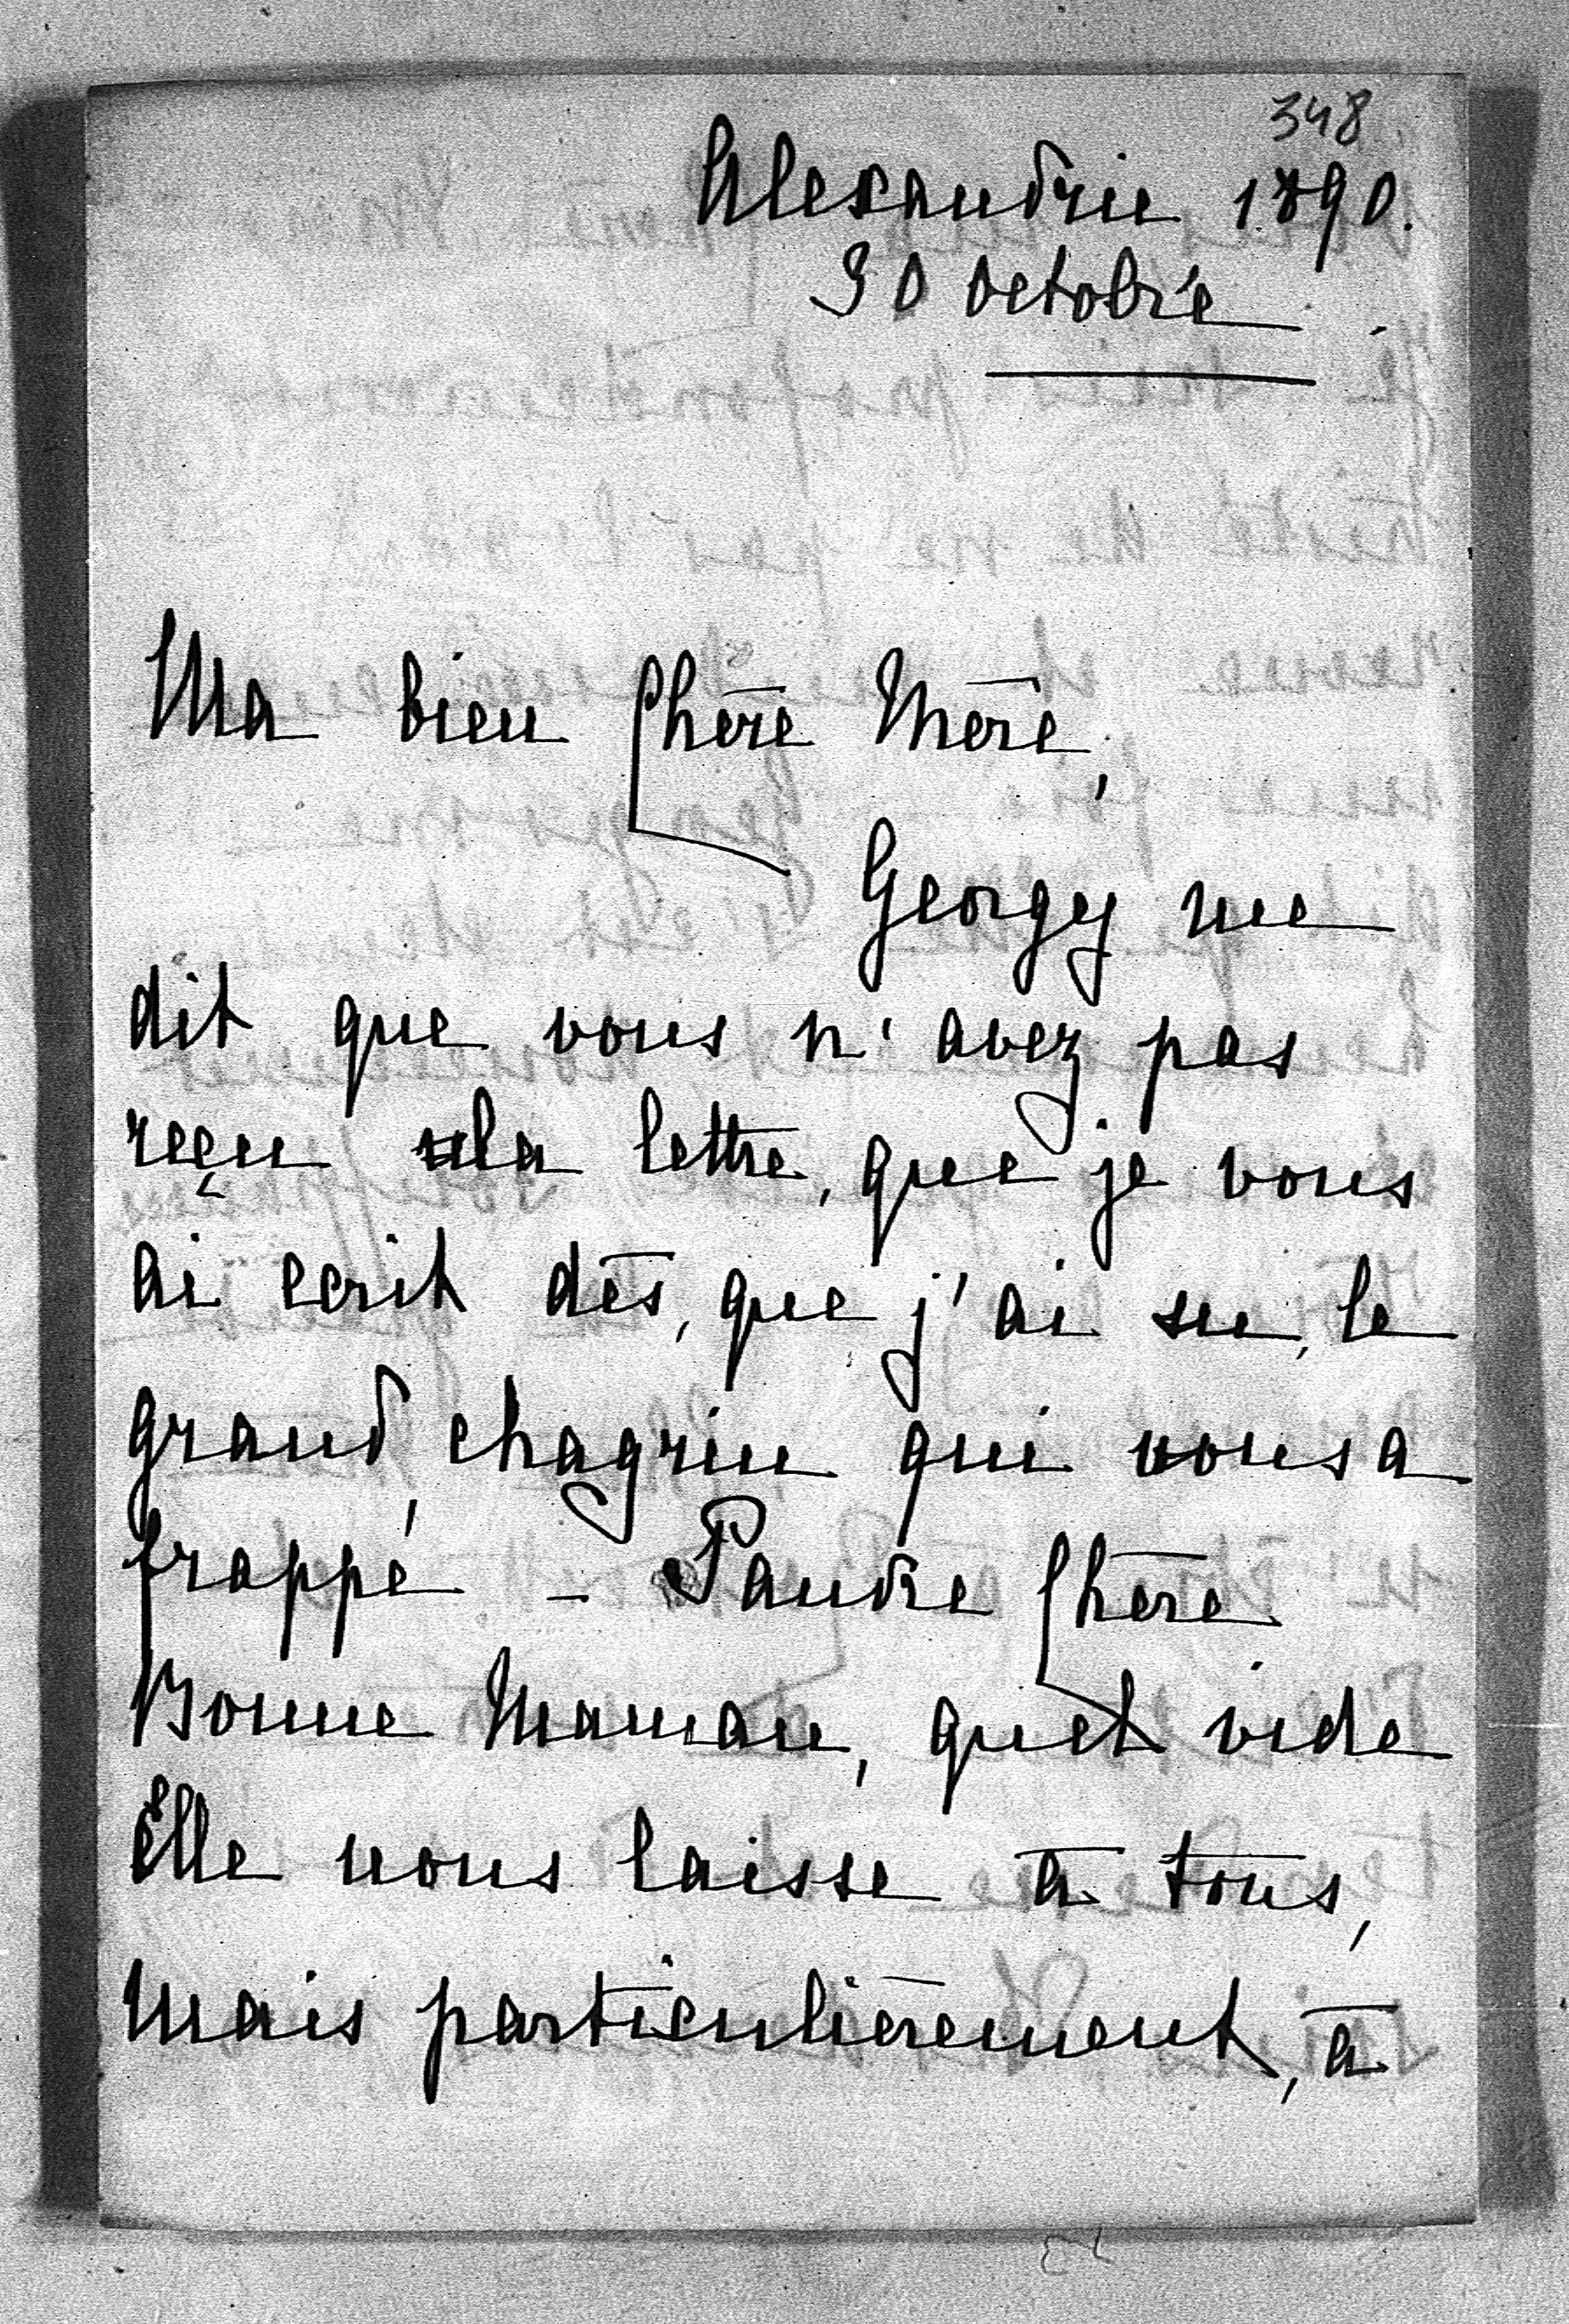 348
Alexandrie 1890.
30 octobre
Ma bien Chère Mère,
Georgy me
dit que vous n'avez pas
reçu la lettre, que je vous
ai ecrit dès, que j'ai su, le
grand chagrin qui vous a
frappé - Pauvre Chère
Bonne Maman, quel vide
Elle nous laisse à tous,
Mais particulièrement, à